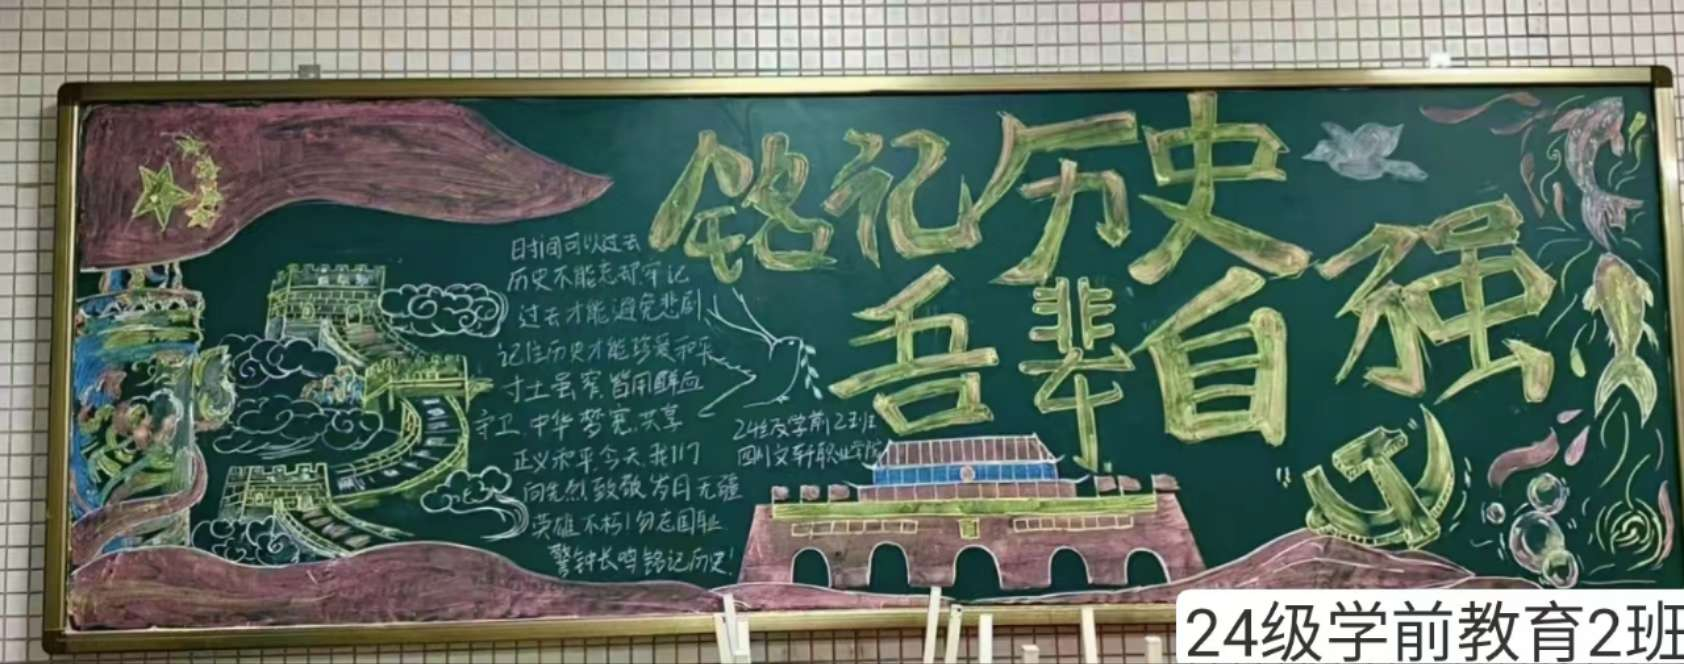 铭记历史
吾辈自强
时间可以过去
历史不能忘却.牢记
过去才能避免悲剧、
记住历史才能珍爱和平
寸土虽窄,皆用鲜血
守卫,中华梦宽,共享
正义和平,今天,我们
向先烈致敬,岁月无疆
英雄不朽!勿忘国耻
警钟长鸣铭记历史!
24级学前2班
四川文轩职业学院
24级学前教育2班